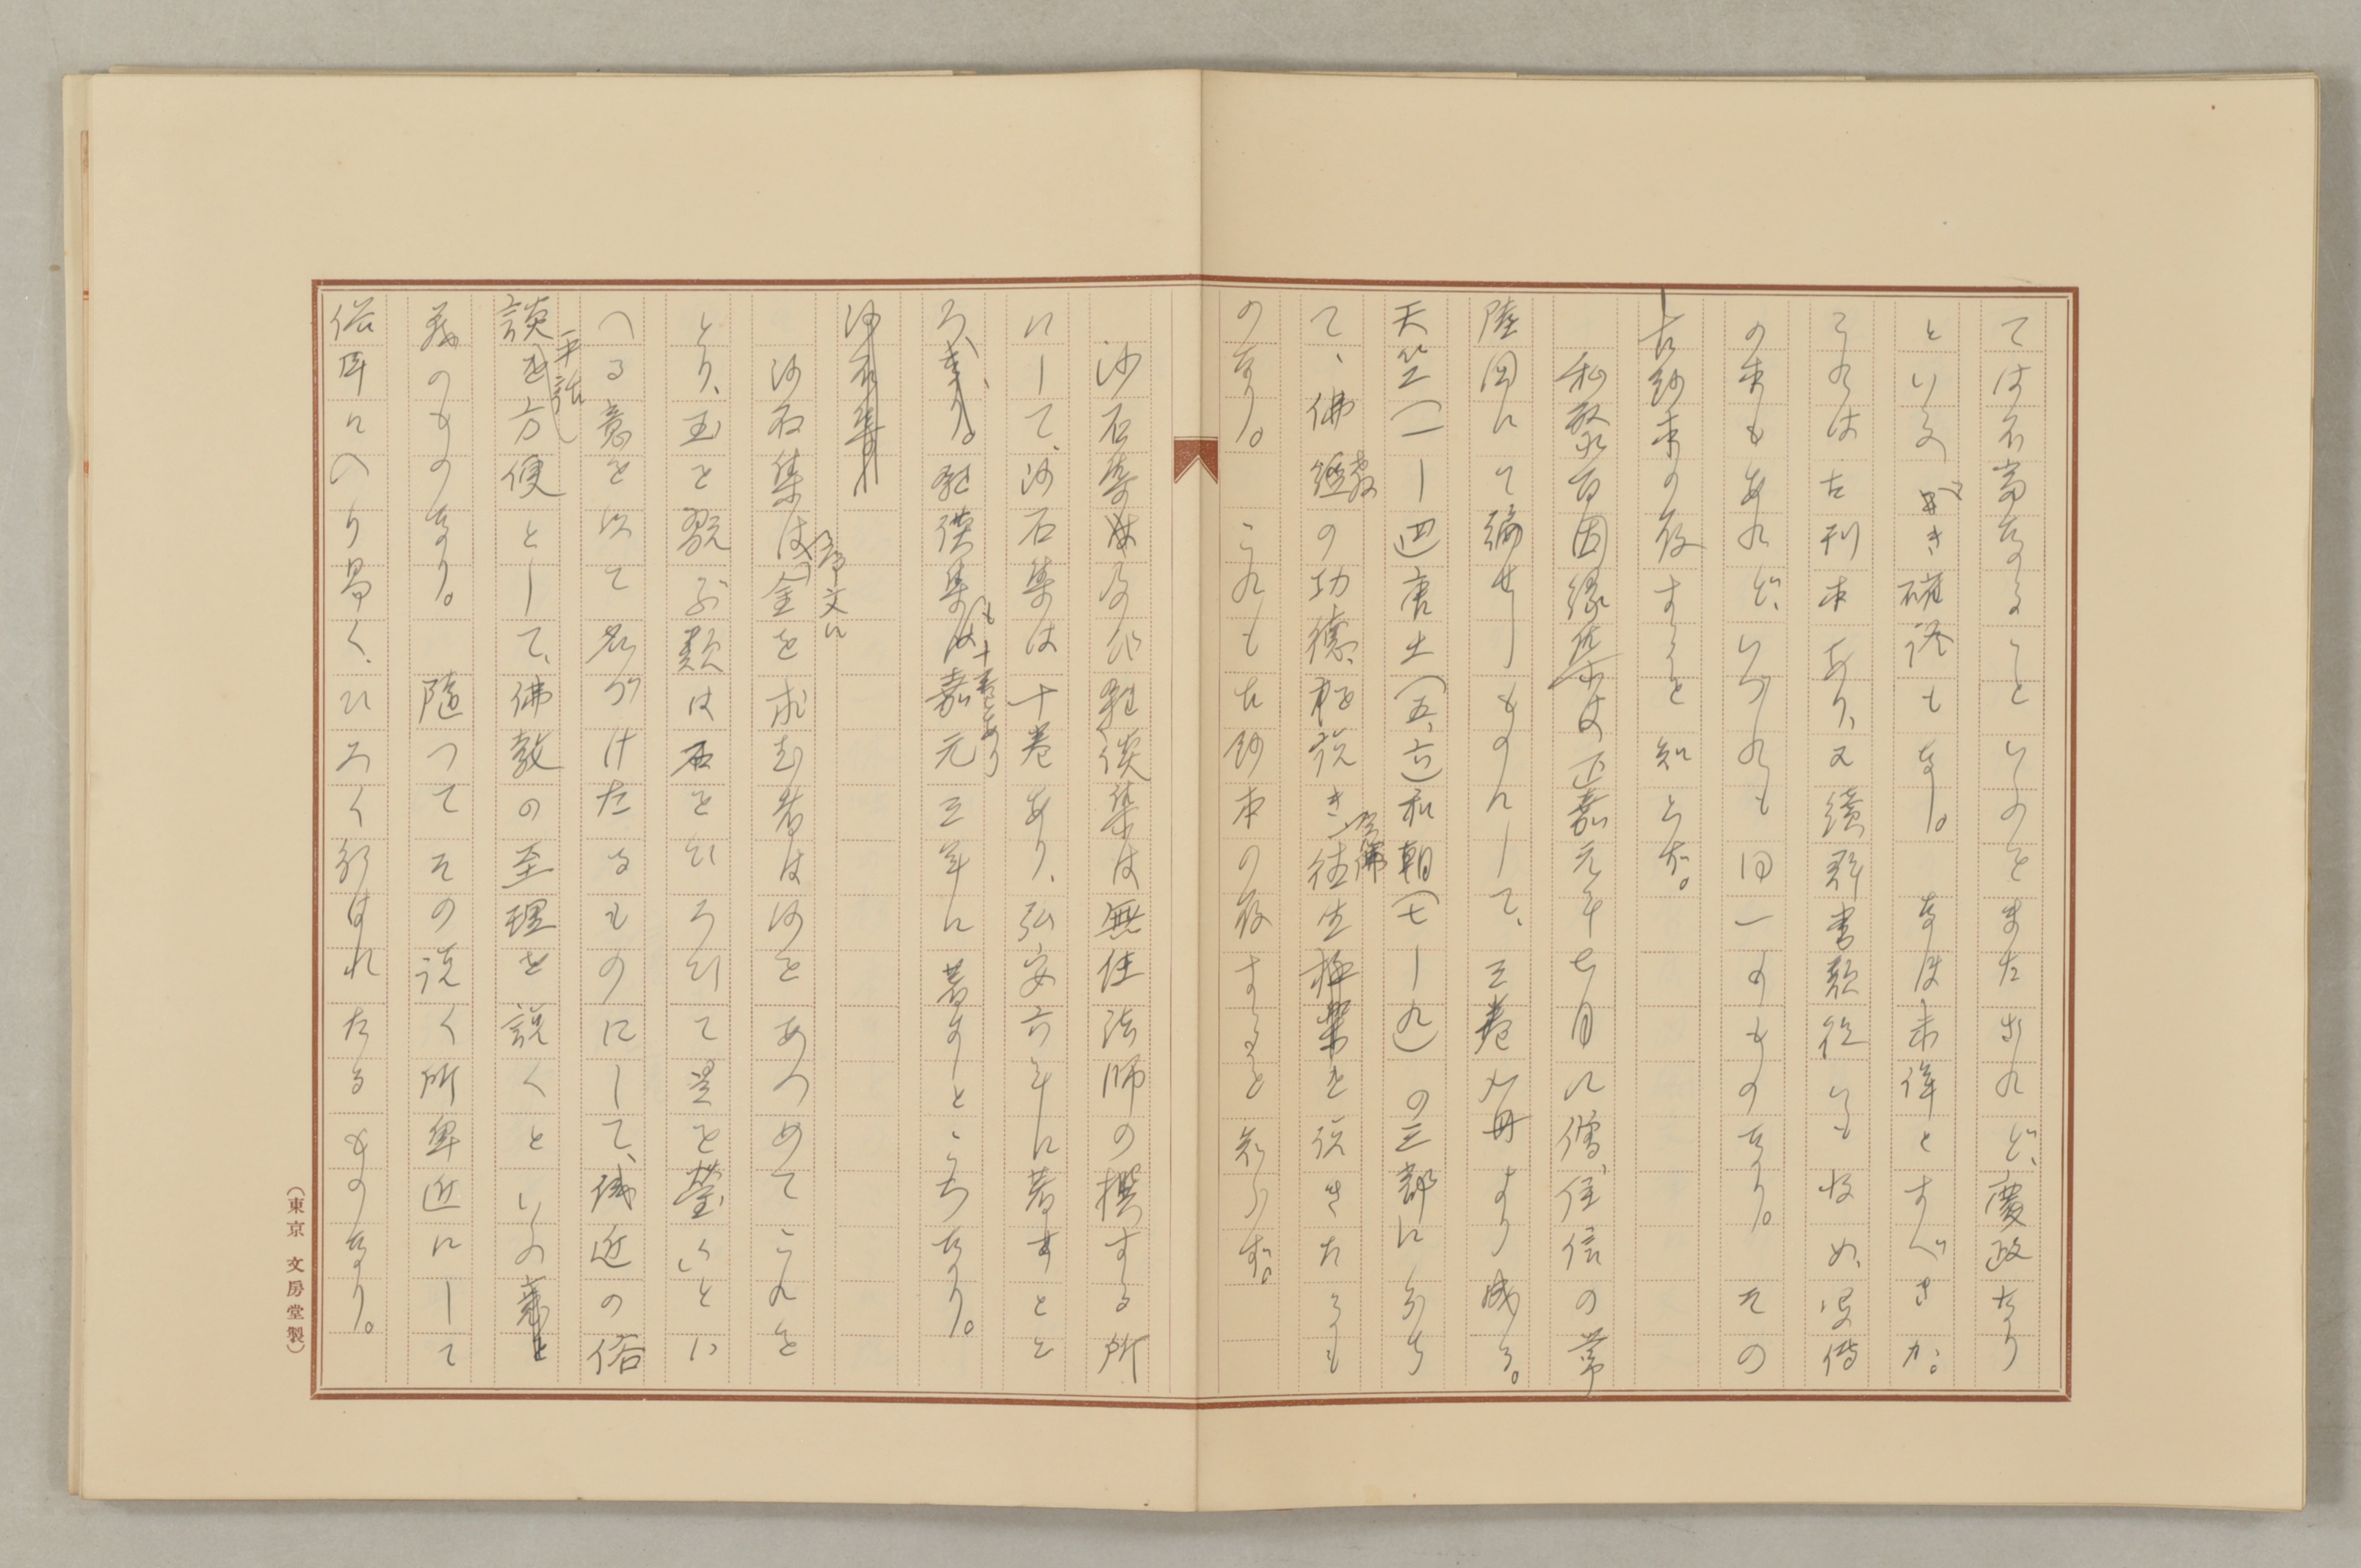 ては不當なることいふをまたざれど、慶政なり
といふべき確證もなし。 なほ未詳とすべきか。
これは古刊本あり、又續群書類從にも收め、罕傳
の本もあれど、いづれも同一のものなり。 その
古鈔本の存するを知らず。
私聚百因緣集は正嘉元年七月に僧、住信の常
陸國にて編せしものにして、三卷九冊より成る。
天竺(一ー四)唐土(五、六)和朝(七ー九)の三部にわかち
て、佛教の功德を説き、念佛往生極樂を説きたるも
のなり。 これも古鈔本の存するを知らず。
沙石集及び雜談集は無住法師の撰する所
にして、沙石集は十卷あり、弘安六年に著すとこ
ろ、雜談集も十卷あり嘉元三年に著すところなり。
沙石集は序文に金を求むる者は沙をあつめてこれを
とり、玉を翫ぶ類は石をひろひて是を瑩くとい
へる意を以て名づけたるものにして、淺近の俗
談平話を方便として、佛教の至理を説くといふ
義のものなり。 隨つてその説く所卑近にして
俗耳に入り易く、ひろく行はれたるものなり。
(東京 文房堂製)